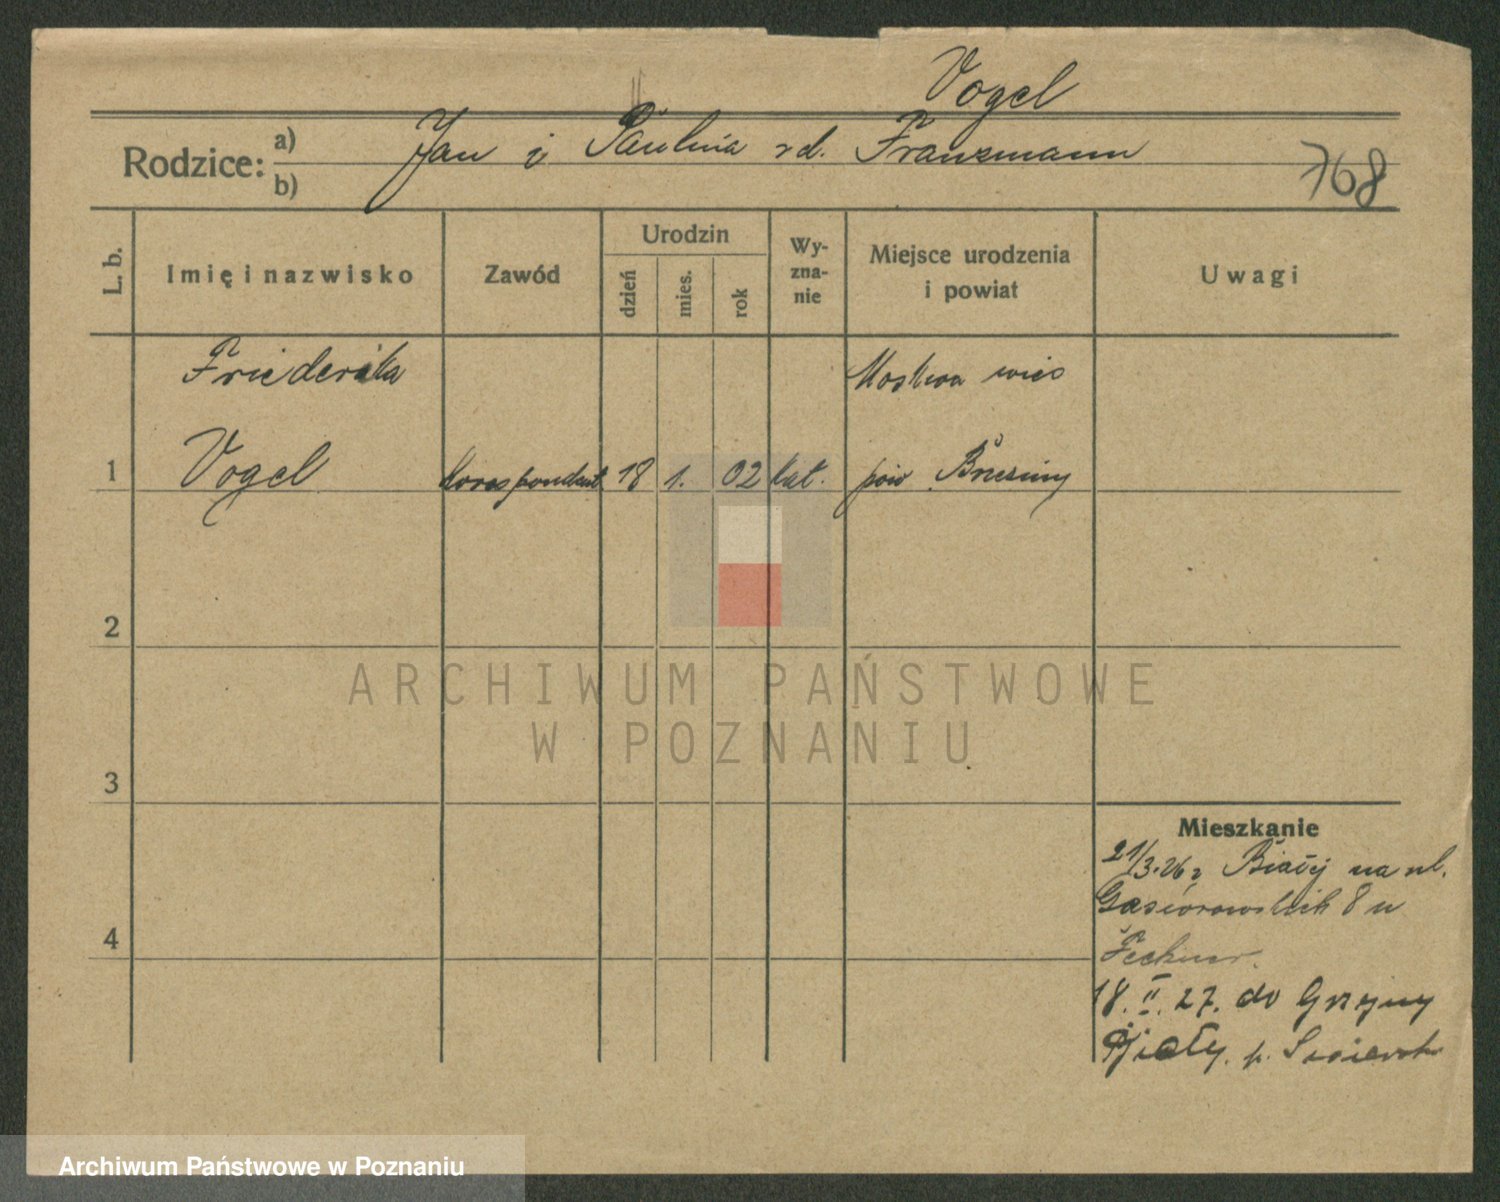 Vogel
Rodzice: a) b) Jan i Paulina rd. Franzmann
768
L. b.
Imię i nazwisko
Zawód
Urodzin
dzień
mies.
rok
Wy-
zna-
nie
Miejsce urodzenia
i powiat
Uwagi
Friederika
Moskwa wieś
1 Vogel korespondent 18 1. 02 kat. pow Brzeziny
2
ARCHIWUM PAŃSTWOWE
W POZNANIU
3
Mieszkanie
21/3.26 z Białej na ul.
Gąsiorowskich 8 u
4
18. II. 27. do
p.
Archiwum Państwowe w Poznaniu